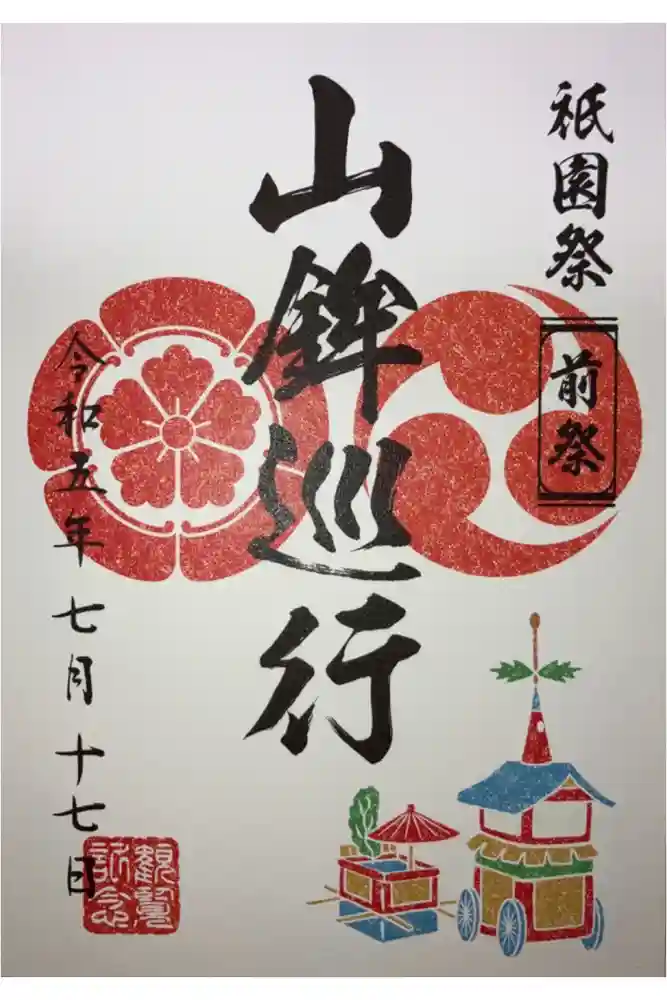 祇園祭
前祭
山鉾巡行
令和五年七月十七日